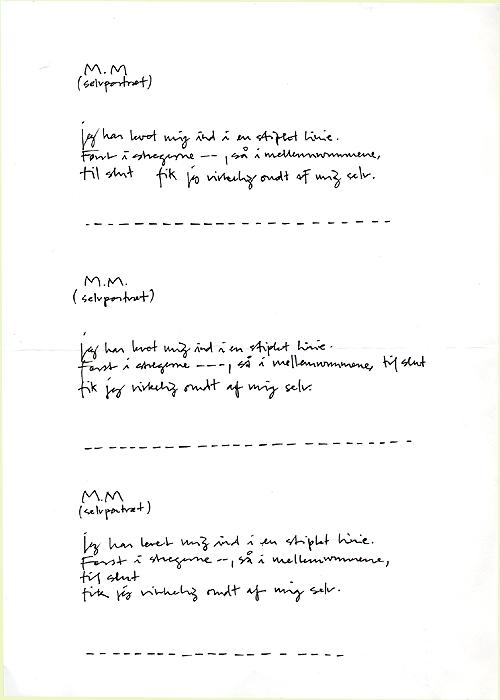 M.M
(selvportræt)
jeg har levet mig ind i en stiplet linie.
Først i stregerne --, så i mellemrummene,
til slut fik jeg virkelig ondt af mig selv.
M.M.
(selvportræt)
jeg har levet mig ind i en stiplet linie.
Først i stregerne ---, så i mellemrummene, til slut
fik jeg virkelig ondt af mig selv.
M.M
(selvportræt)
jeg har levet mig ind i en stiplet linie.
Først i stregerne --, så i mellemrummene,
til slut
fik jeg virkelig ondt af mig selv.